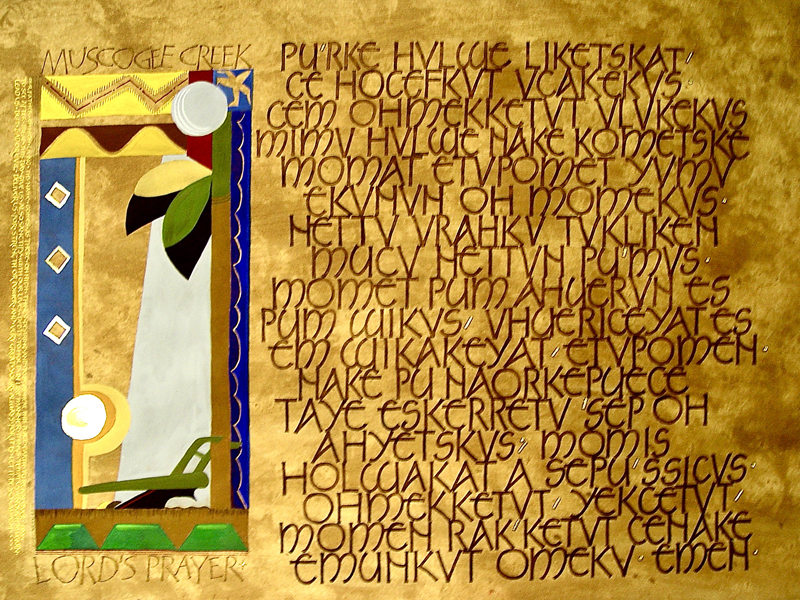 MUSCOGEE CREEK
PU'RKE HVLWE LIKETSKAT,
CE HOCEFKVT VCAKEKVS.
CEM OHMEKKETVT VLVKEKVS
MIMV HVLWE NAKE KOMETSKE
MOMAT ETVPOMET YVMV
EKVNVN OH MOMEKVS.
NETTV VRAHKV TVKLIKEN
MUCV NETTVN PU'MVS.
MOMET PUM AHUERVN ES
PUM WIKVS, VHUERICEYAT ES
EM WIKAKEYAT ETVPOMEN.
NAKE PU NAORKEPUECE
TAYE ESKERRETV SEPOH
AHYETSKVS; MOMIS
HOLWAKAT A SEPU'SSICVS.
OHMEKKETVT, YEKCETVT,
MOMEN RAK'KETVT CENAKE
EMUNKVT OMEKV. EMEN
LORD'S PRAYER